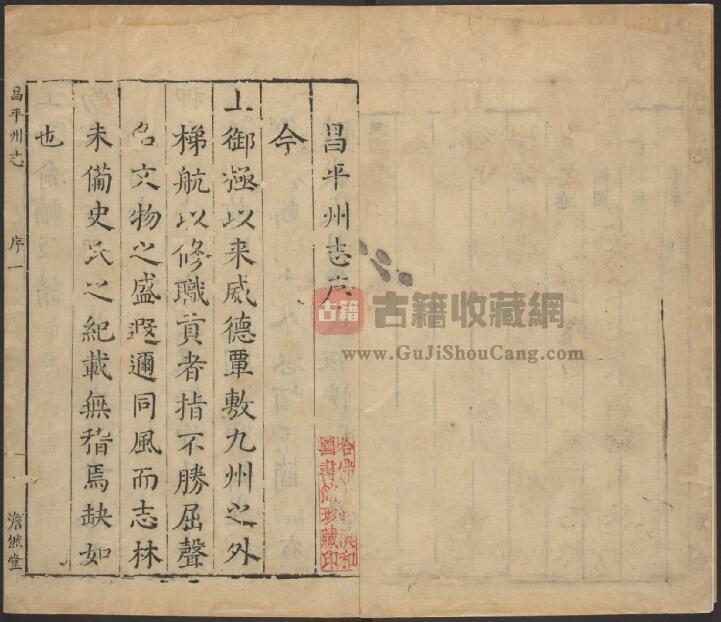 昌平州志序
今
上御極以来威德覃敷九州之外
梯航以修職貢者指不勝屈聲
名文物之盛遐邇同風而志林
未備史氏之紀載無稽焉缺如
也
昌平州志
序一
澹然堂
古籍
古籍收藏網
www.GuJiShouCang.com
哈佛大學漢和
圖書館珍藏印